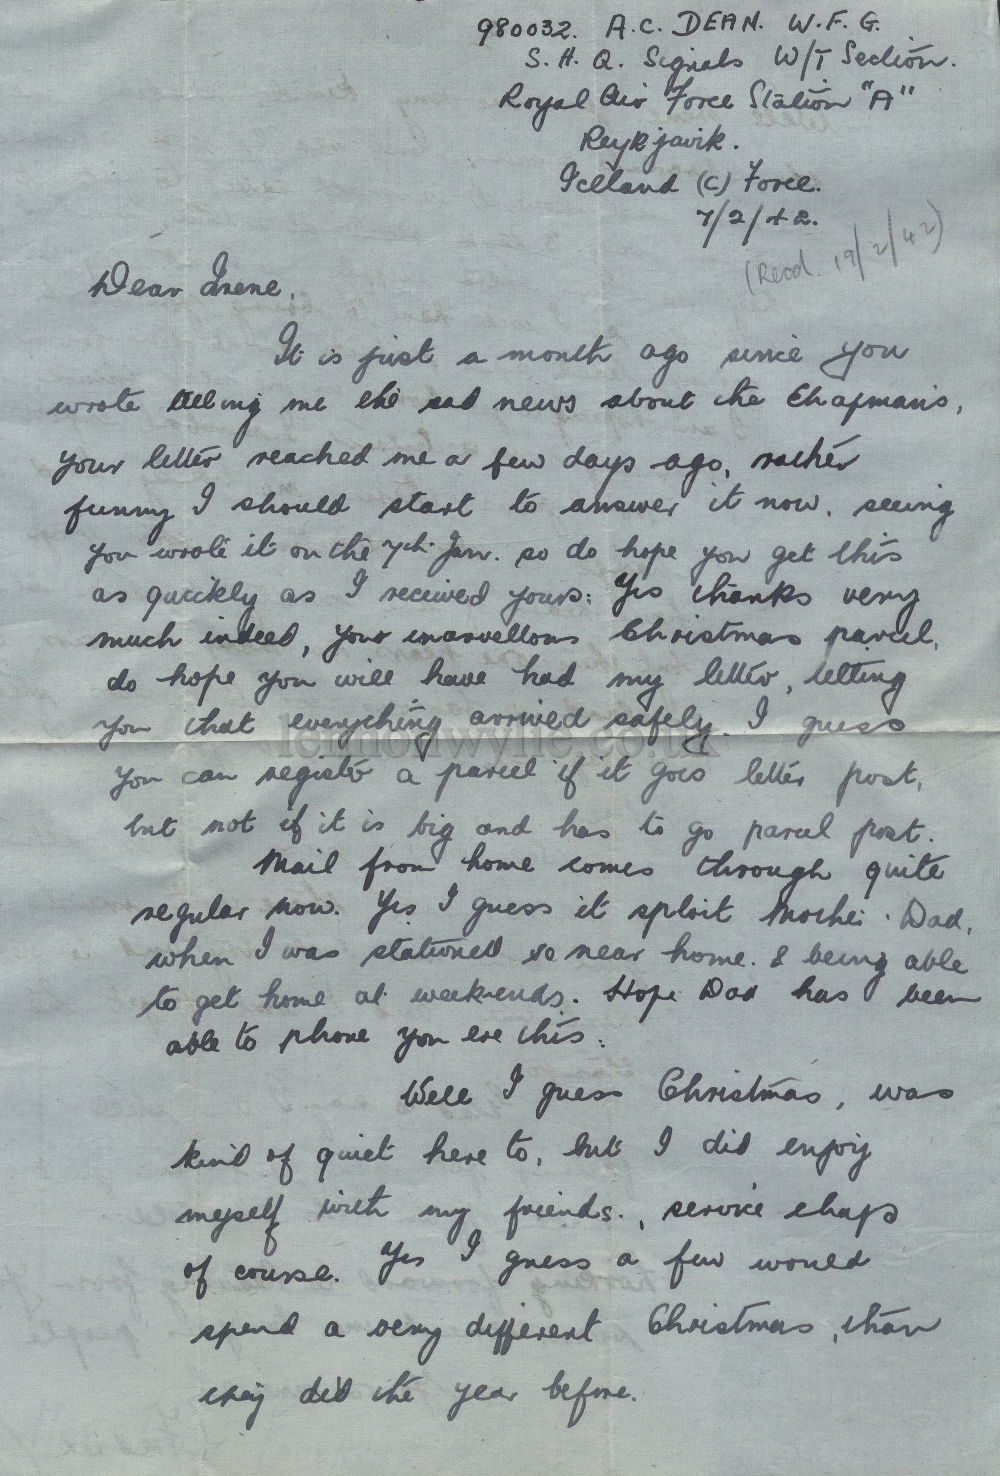 980032. A.C. DEAN. W.F.G.
S.H.Q. Signals W/T Section.
Royal Air Force Station "A"
Reykjavik.
Iceland (C) Force.
7/2/42.
(Recd. 19/2/42)
Dear Irene,
It is just a month ago since you
wrote telling me the sad news about the Chapman's,
your letter reached me a few days ago, rather
funny I should start to answer it now, seeing
you wrote it on the 7th Jan. so do hope you get this
as quickly as I received yours: Yes thanks very
much indeed, your marvellous Christmas parcel,
do hope you will have had my letter, letting
you that everything arrived safely. I guess
lemonwylie.co.uk
you can register a parcel if it goes letter post,
but not if it is big and has to go parcel post.
Mail from home comes through quite
regular now. Yes I guess it sploit Mother. Dad,
when I was stationed so near home. & being able
to get home at week-ends. Hope Dad has been
able to phone you ere this.
Well I guess Christmas, was
kind of quiet here to, but I did enjoy
myself with my friends., service chaps
of course. Yes I guess a few would
spend a very different Christmas, than
they did the year before.